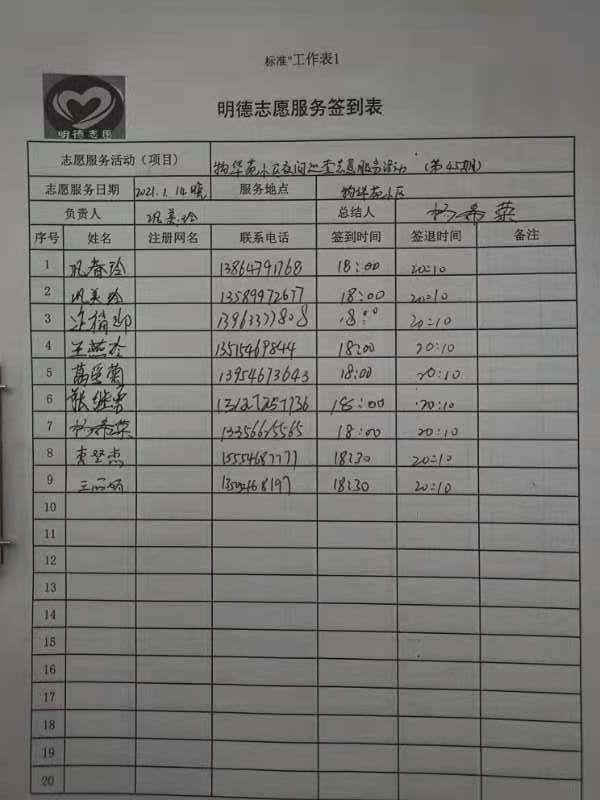 标准"工作表1
明德志愿
明德志愿服务签到表
志愿服务活动（项目） 物华苑小区夜间巡查志愿服务活动 （第45期）
志愿服务日期 2021.1.14晚 服务地点 物华苑小区
负责人 巩美玲 总结人 杨希荣
序号 姓名 注册网名 联系电话 签到时间 签退时间 备注
1 巩春玲 13864791768 18:00 20:10
2 巩美玲 13589972677 18:00 20:10
3 13963377808 18:00 20:10
4 王燕杰 13515469844 18:00 20:10
5 13954673643 18:00 20:10
6 张继勇 18:00 20:10
7 杨希荣 13356615565 18:00 20:10
8 李坚杰 18:30 20:10
9 王丽丽 18:30 20:10
10
11
12
13
14
15
16
17
18
19
20